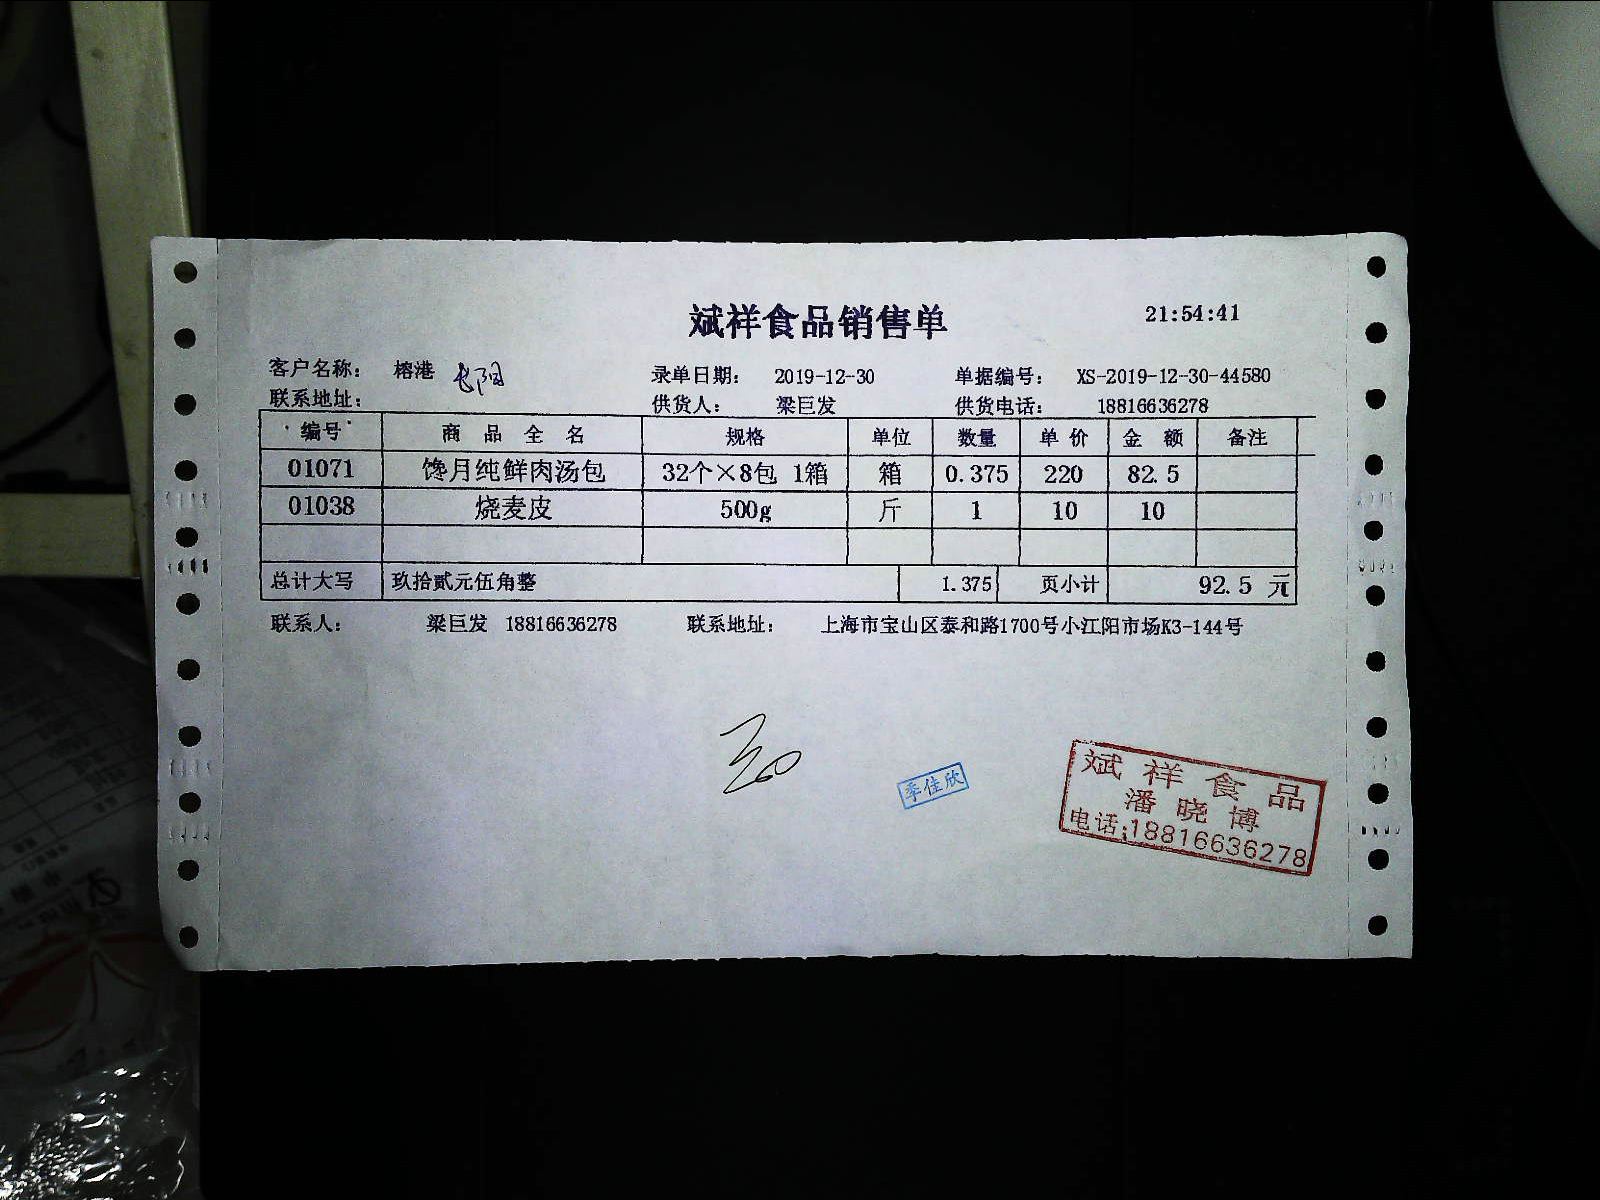 斌祥食品销售单 21:54:41
客户名称: 榕港 长阳 录单日期: 2019-12-30 单据编号: XS-2019-12-30-44580
联系地址: 供货人: 梁巨发 供货电话: 18816636278
编号 商品全名 规格 单位 数量 单价 金额 备注
01071 馋月纯鲜肉汤包 32个×8包 1箱 箱 0.375 220 82.5
01038 烧麦皮 500g 斤 1 10 10
总计大写 玖拾贰元伍角整 1.375 页小计 92.5 元
联系人: 梁巨发 18816636278 联系地址: 上海市宝山区泰和路1700号小江阳市场K3-144号
季佳欣
斌祥食品
潘晓博
电话:18816636278